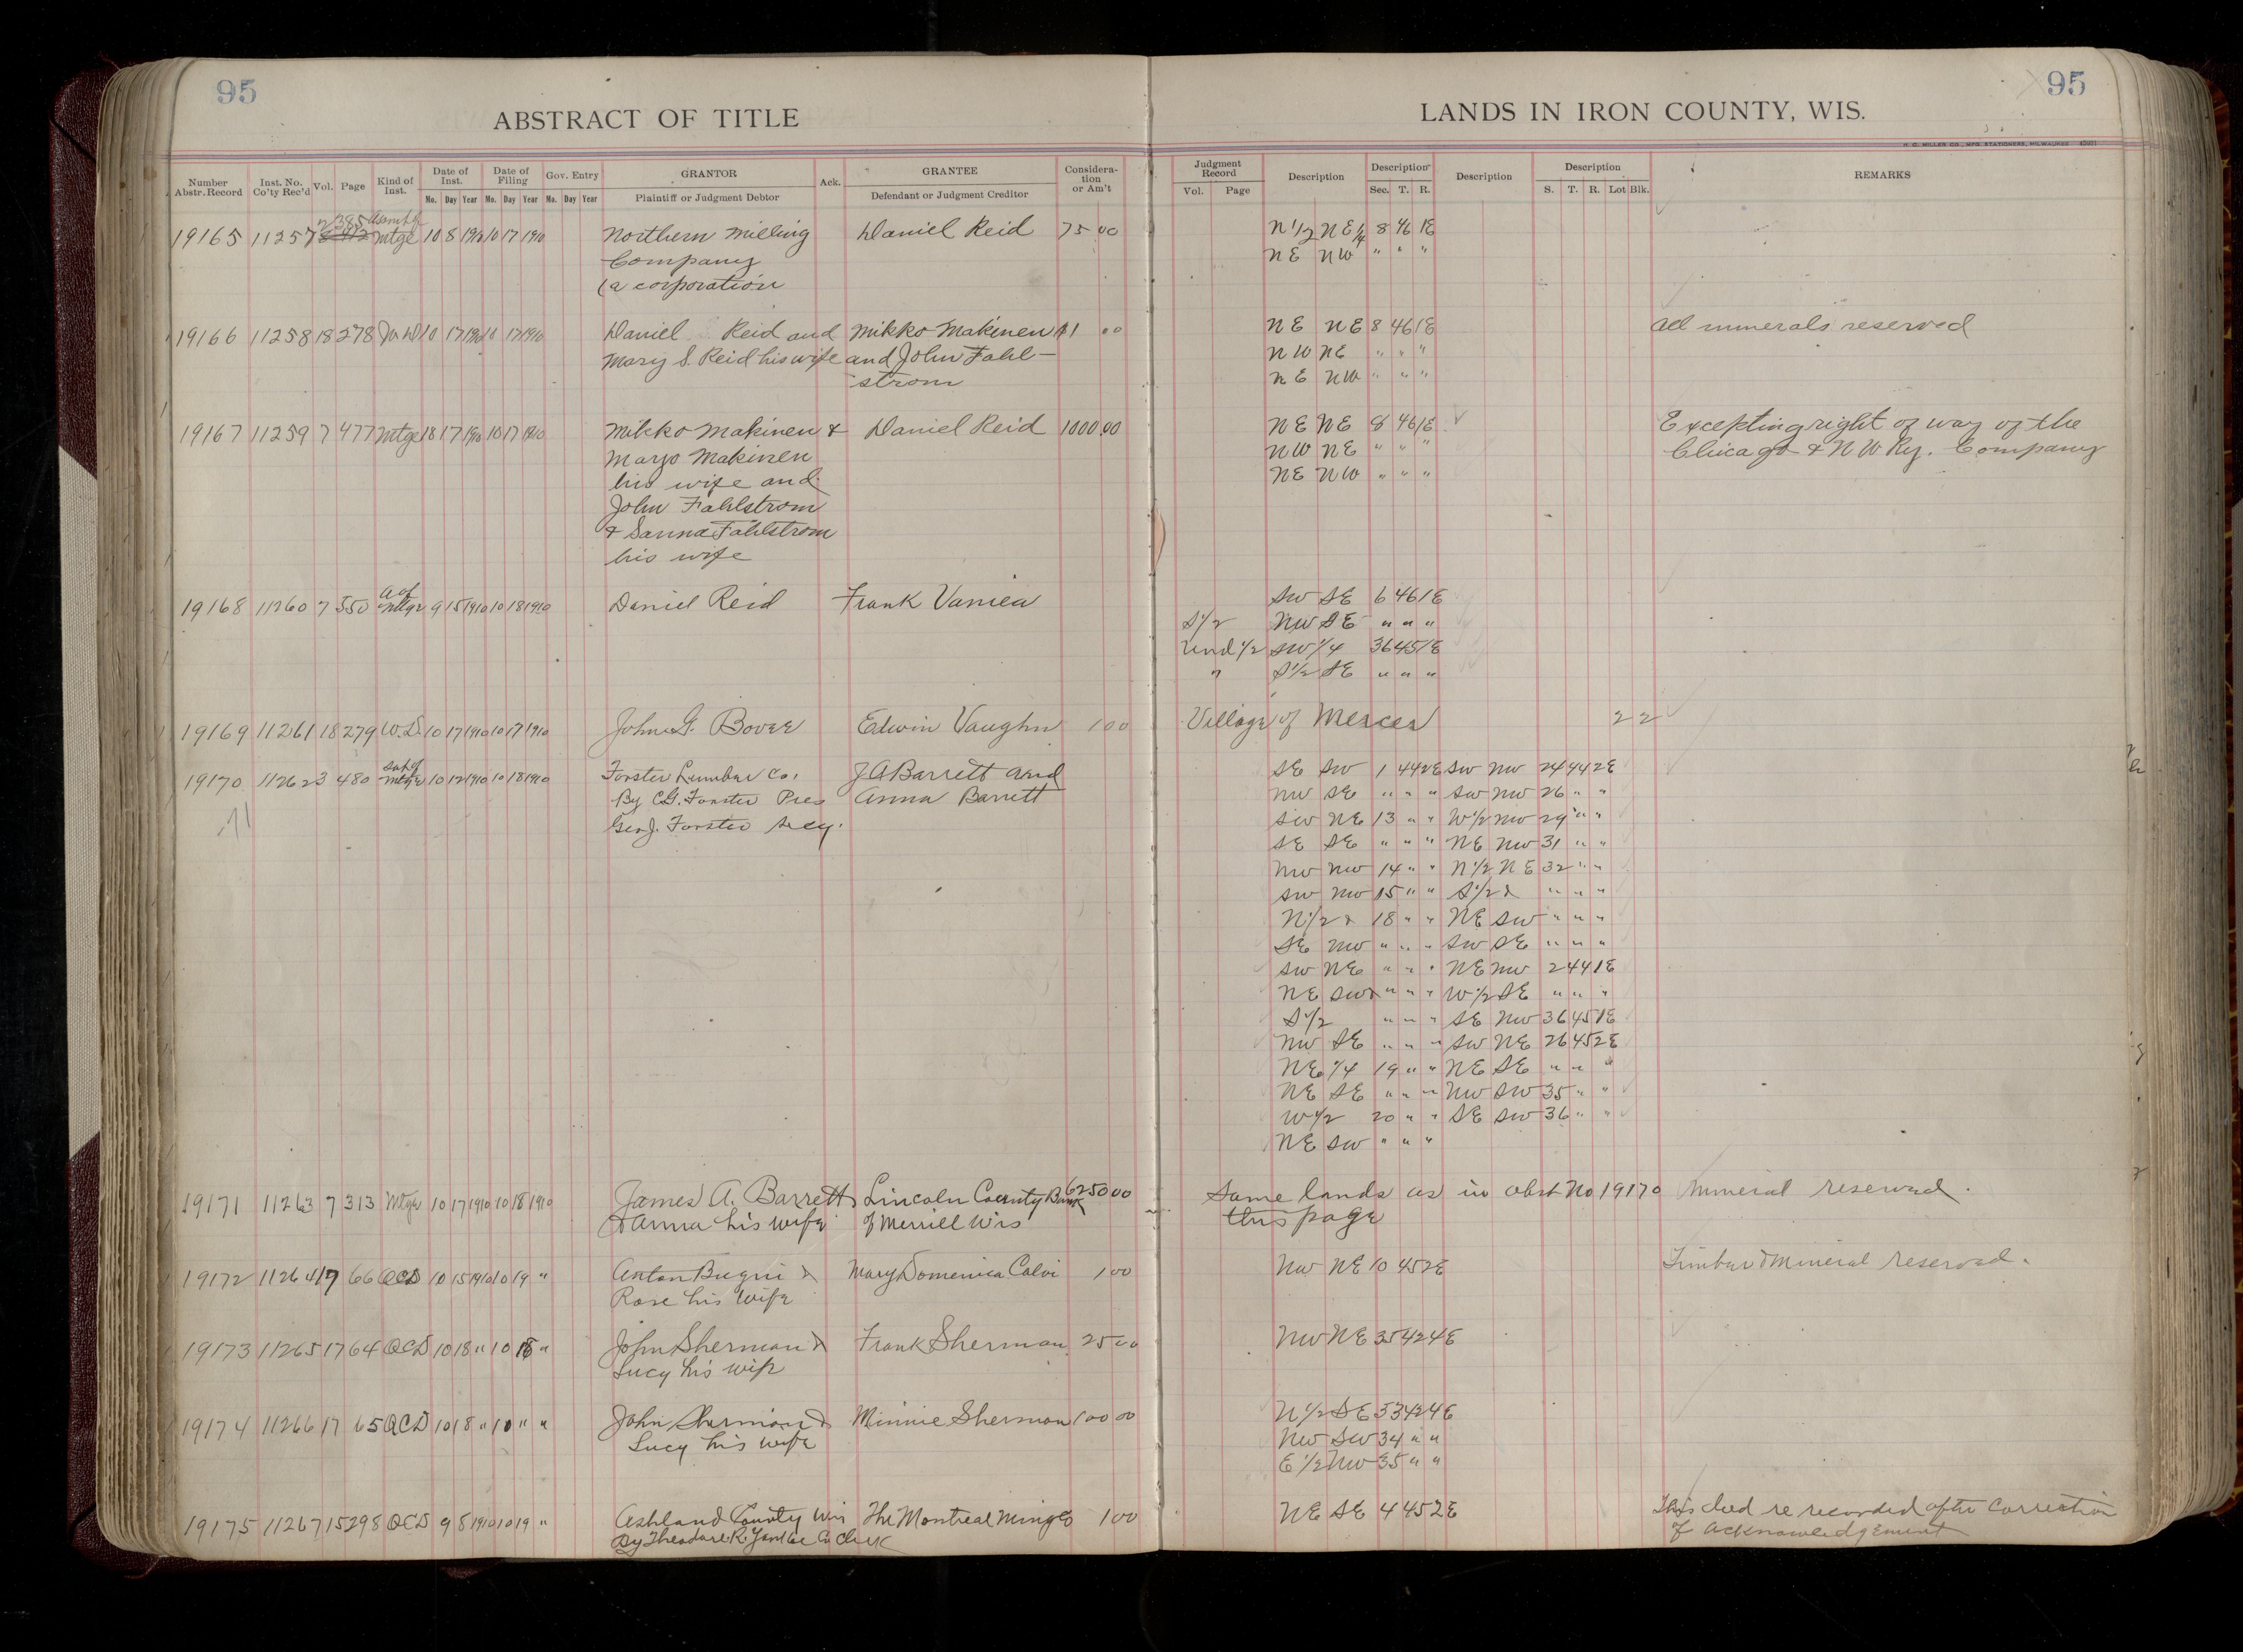 95
95
ABSTRACT OF TITLE
LANDS IN IRON COUNTY, WIS.
H. G. MILLER CO., MFG. STATIONERS, MILWAUKEE
Number Abstr. Record Inst. No. Co'ty Rec'd Vol. Page Kind of Inst. Date of Inst. Date of Filing Gov. Entry GRANTOR Ack. GRANTEE Considera-tion or Am't Judgment Record Description Description Description Description REMARKS
Mo. Day Year Mo. Day Year Mo. Day Year Plaintiff or Judgment Debtor Defendant or Judgment Creditor Vol. Page Sec. T. R. S. T. R. Lot Blk.
19165 11257 385 Mtge 10 8 1910 10 17 1910 Northern Milling Daniel Reid 75 00 N 1/2 NE 1/4 8 46 1E
Company NE NW " " "
(a corporation
19166 11258 18 278 10 17 1910 10 17 1910 Daniel Reid and Mikko Makinen $1 00 NE NE 8 46 1E All minerals reserved
Mary S. Reid his wife and John Fahl- NW NE " " "
strom NE NW " " "
19167 11259 7 477 Mtge 10 17 1910 10 17 1910 Mikko Makinen & Daniel Reid 1000.00 NE NE 8 46 1E Excepting right of way of the
Marjo Makinen NW NE " " " Chicago & N W Ry. Company
his wife and NE NW " " "
John Fahlstrom
& Sanna Fahlstrom
his wife
19168 11260 7 550 A of Mtge 9 15 1910 10 18 1910 Daniel Reid Frank Vaniea SW SE 6 46 1E
S 1/2 NW SE " " "
Und 1/2 SW 1/4 36 45 1E
" S 1/2 SE " " "
19169 11261 18 279 W.D. 10 17 1910 10 17 1910 John G. Bovee Edwin Vaughn 1 00 Village of Mercer 2 2
19170 11262 3 480 Sat of Mtge 10 12 1910 10 18 1910 Forster Lumber Co. J A Barrett and SE SW 1 44 2E SW NW 24 44 2E
By C.G. Forster Pres Anna Barrett NW SE " " " SW NW 26 " "
Geo. J. Forster Secy. SW NE 13 " " W 1/2 NW 29 " "
SE SE " " " NE NW 31 " "
NW NW 14 " " N 1/2 NE 32 " "
SW NW 15 " " S 1/2 & " " "
N 1/2 & 18 " " NE SW " " "
SE NW " " " SW SE " " "
SW NE " " " NE NW 2 44 1E
NE SW & " " " W 1/2 SE " " "
S 1/2 " " " SE NW 36 45 1E
NW SE " " " SW NE 26 45 2E
NE 1/4 19 " " NE SE " " "
NE SE " " " NW SW 35 " "
W 1/2 20 " " SE SW 36 " "
NE SW " " "
19171 11263 7 313 Mtge 10 17 1910 10 18 1910 James A. Barrett Lincoln County Bank 6250 00 Same lands as in abst No 19170 Mineral reserved.
& Anna his wife of Merrill Wis this page
19172 11264 17 66 QCD 10 15 1910 10 19 " Anton Bugni & Mary Domenica Calvi 1 00 NW NE 10 45 2E Timber & Mineral reserved.
Rose his wife
19173 11265 17 64 QCD 10 18 " 10 18 " John Sherman & Frank Sherman 25 00 NW NE 35 42 4E
Lucy his wife
19174 11266 17 65 QCD 10 18 " 10 " " John Sherman & Minnie Sherman 100 00 N 1/2 SE 33 42 4E
Lucy his wife NW SW 34 " "
E 1/2 NW 35 " "
19175 11267 15 298 QCD 9 8 1910 10 19 " Ashland County Wis The Montreal Ming Co 1 00 NE SE 4 45 2E This deed re recorded after correction
By Theodore R. Co Clerk of acknowledgement